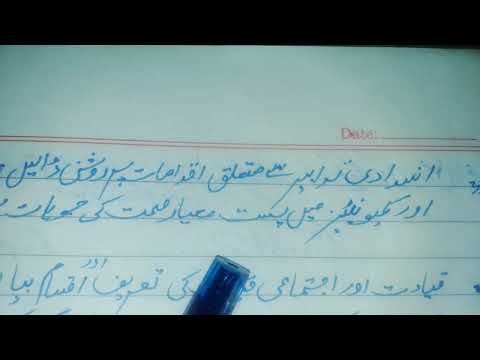 Date:
انسدادی تدابیر سے متعلق اقدامات پر روشنی ڈالیں
اور کمیونٹیز میں پست معیار صحت کی وجوہات
قیادت اور اجتماعی کی تعریف اور اقسام بیا